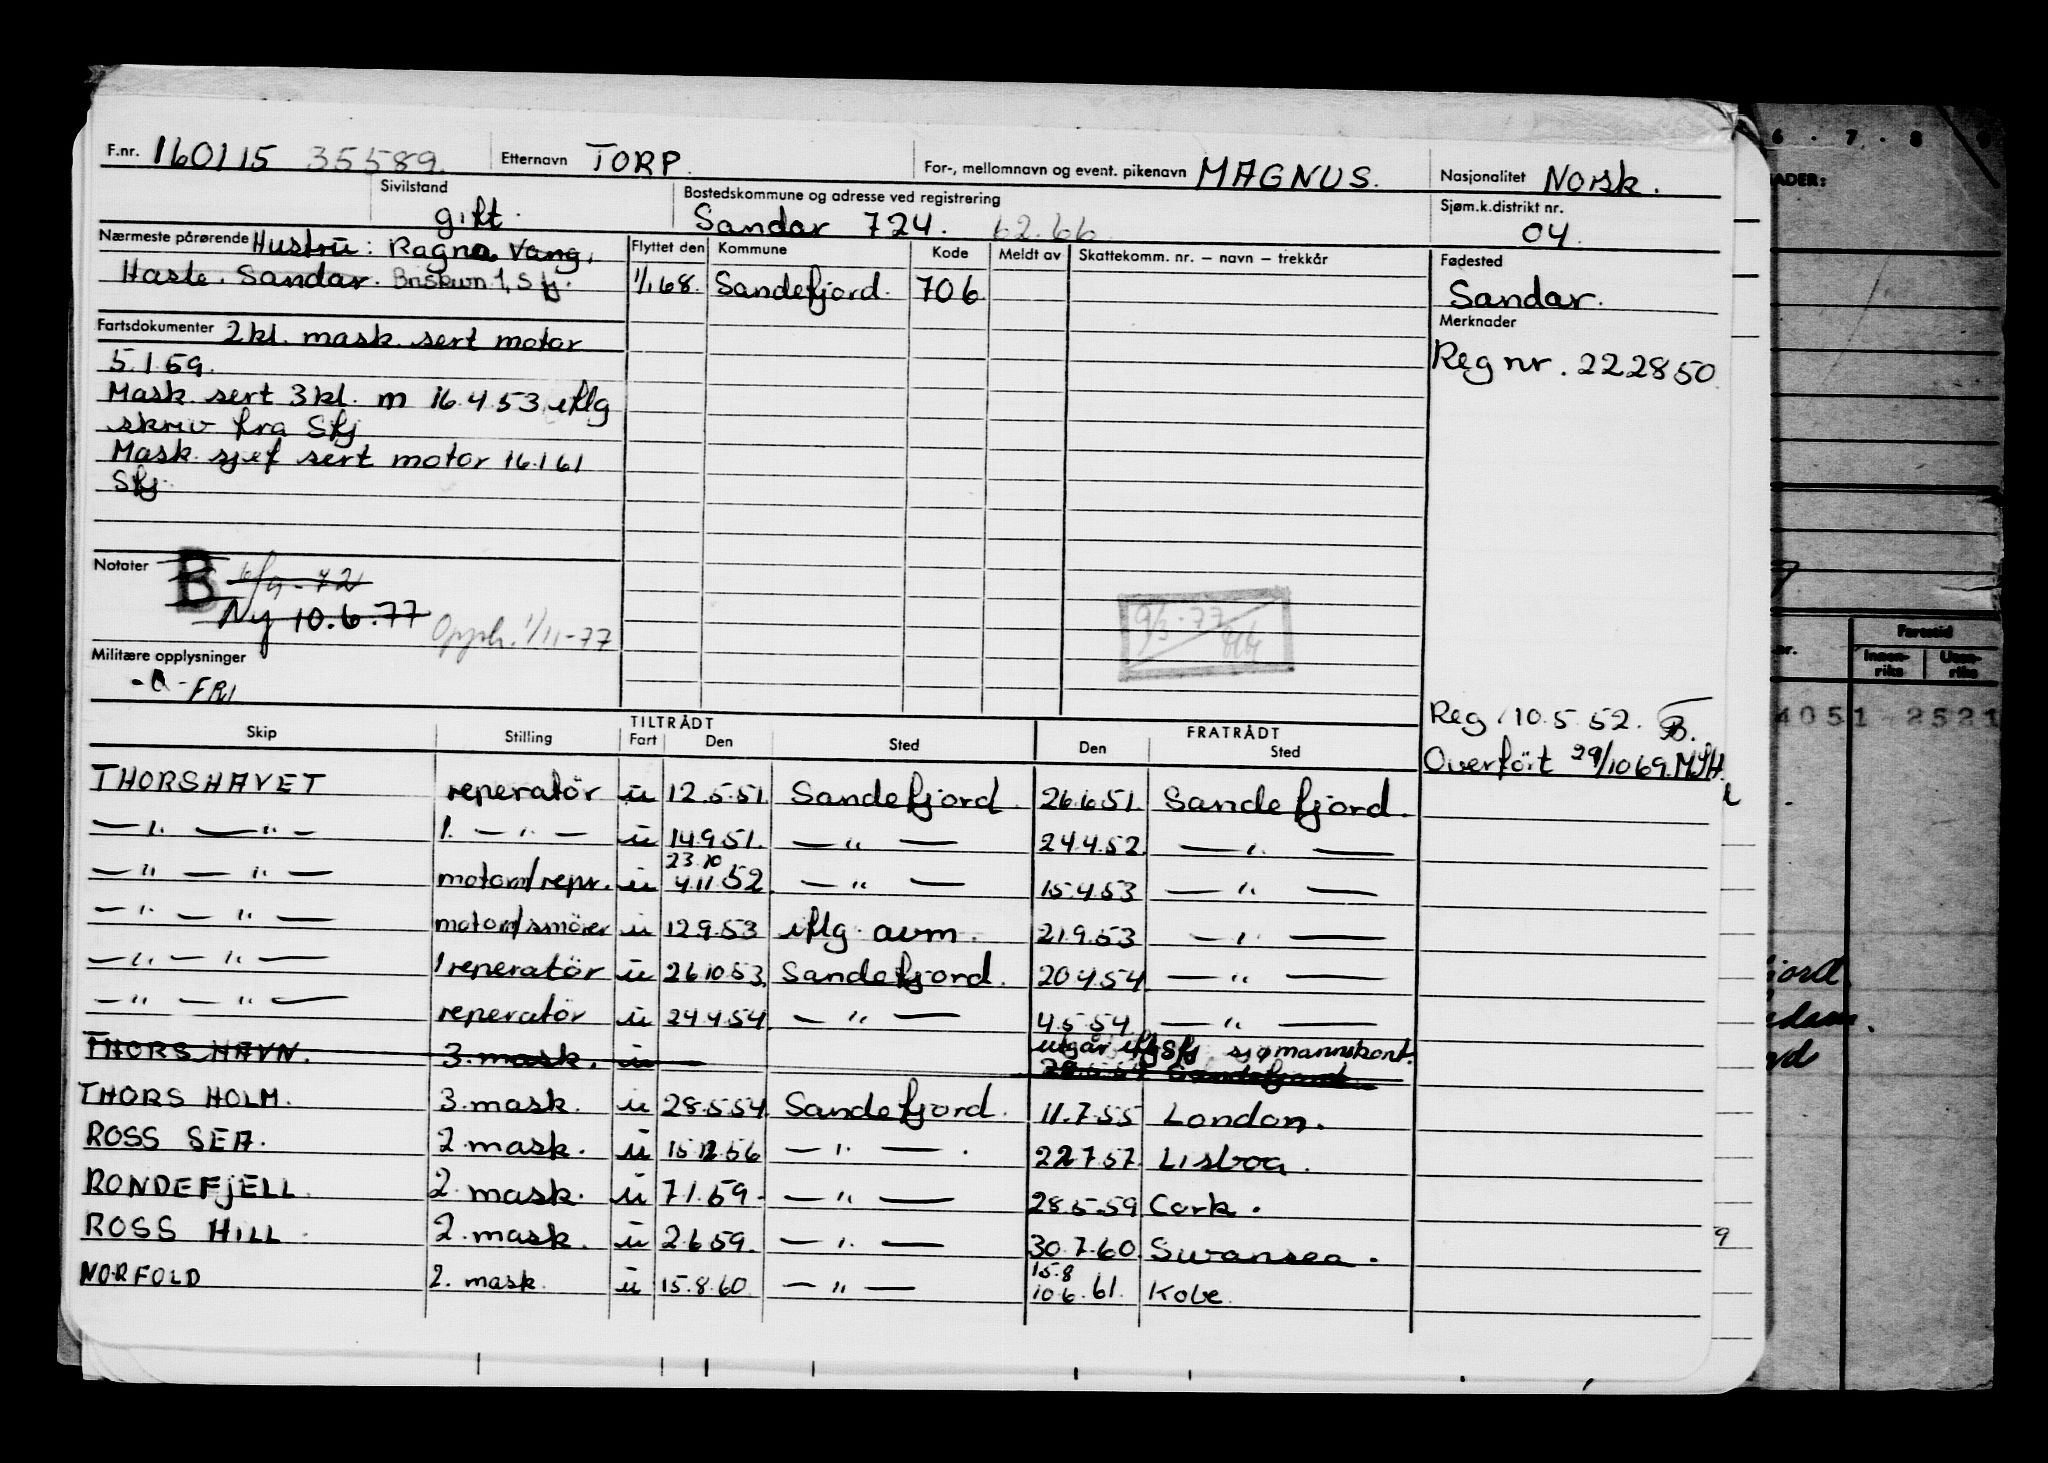 F.nr. 160115 35589. Etternavn TORP. For-, mellomnavn og event. pikenavn MAGNUS. Nasjonalitet Norsk.
Sivilstand gift. Bostedskommune og adresse ved registrering Sandar 724. 62.66 Sjøm.k.distrikt nr. 04.
Nærmeste pårørende Hustru: Ragna Vang, Flyttet den Kommune Kode Meldt av Skattekomm. nr. – navn – trekkår Fødested
Hasle. Sandar. Briskevn. 1, Sfj. 1/1.68. Sandefjord. 706 Sandar.
Fartsdokumenter 2 kl. mask. sert motor Merknader
5.1.59. Reg nr. 222850.
Mask. sert 3 kl. m 16.4.53 iflg
skriv fra Sfj
Mask. sjef sert motor 16.1.61
Sfj
Notater B 6/9-72
Ny 10.6.77 Opph. 1/11-77 9/3-77
Militære opplysninger
FRI
Reg. 10.5.52. B.
Overført 29/10 69. MSH.
Skip Stilling TILTRÅDT Fart Den Sted FRATRÅDT Den Sted
THORSHAVET reperatör u 12.5.51. Sandefjord. 26.6.51. Sandefjord.
— " — " — 1. — " — u 14.9.51. — " — 24.4.52. — " —
— " — " — motorm/repr. u 23.10 4.11.52. — " — 15.4.53 — " —
— " — " — motorm/smører u 12.9.53 iflg avm. 21.9.53 — " —
— " — " — 1 reperatör u 26.10.53. Sandefjord. 20.4.54. — " —
— " — " — reperatör u 24.4.54. — " — 4.5.54. — " —
THORSHAVN. 3. mask. u — utgår iflg Sfj sjømannskont.
Sandefjord
THORS HOLM. 3. mask. u 28.5.54. Sandefjord. 11.7.55 London.
ROSS SEA. 2. mask. u 15.12.56 — " — . 22.7.57. Lisboa.
RONDEFJELL. 2. mask. u 7.1.59. — " — 28.5.59 Cork.
ROSS HILL. 2. mask. u 2.6.59. — " — 30.7.60. Swansea.
NORFOLD 2. mask. u 15.8.60. — " — 15.8 10.6.61. Kobe.
6 . 7 . 8
ADER:
Fartstid
Innen-riks Uten-riks
4051 2521